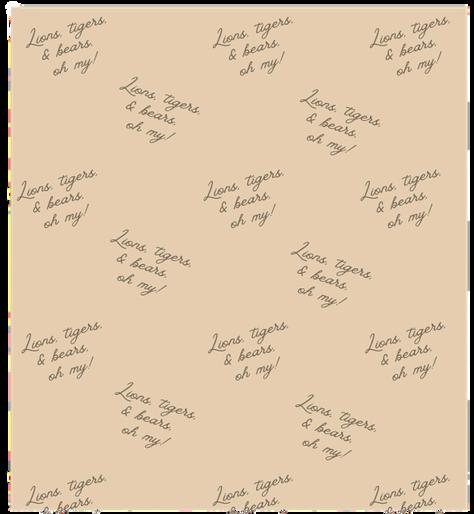 Lions, tigers,
& bears,
oh my!
Lions, tigers,
& bears,
oh my!
Lions, tigers,
& bears,
oh my!
Lions, tigers,
& bears,
oh my!
Lions, tigers,
& bears,
oh my!
Lions, tigers,
& bears,
oh my!
Lions, tigers,
& bears,
oh my!
Lions, tigers,
& bears,
oh my!
Lions, tigers,
& bears,
oh my!
Lions, tigers,
& bears,
oh my!
Lions, tigers,
& bears,
oh my!
Lions, tigers,
& bears,
oh my!
Lions, tigers,
& bears,
oh my!
Lions, tigers,
& bears,
oh my!
Lions, tigers,
& bears,
oh my!
Lions, tigers,
& bears,
Lions, tigers,
& bears,
Lions, tigers,
& bears,